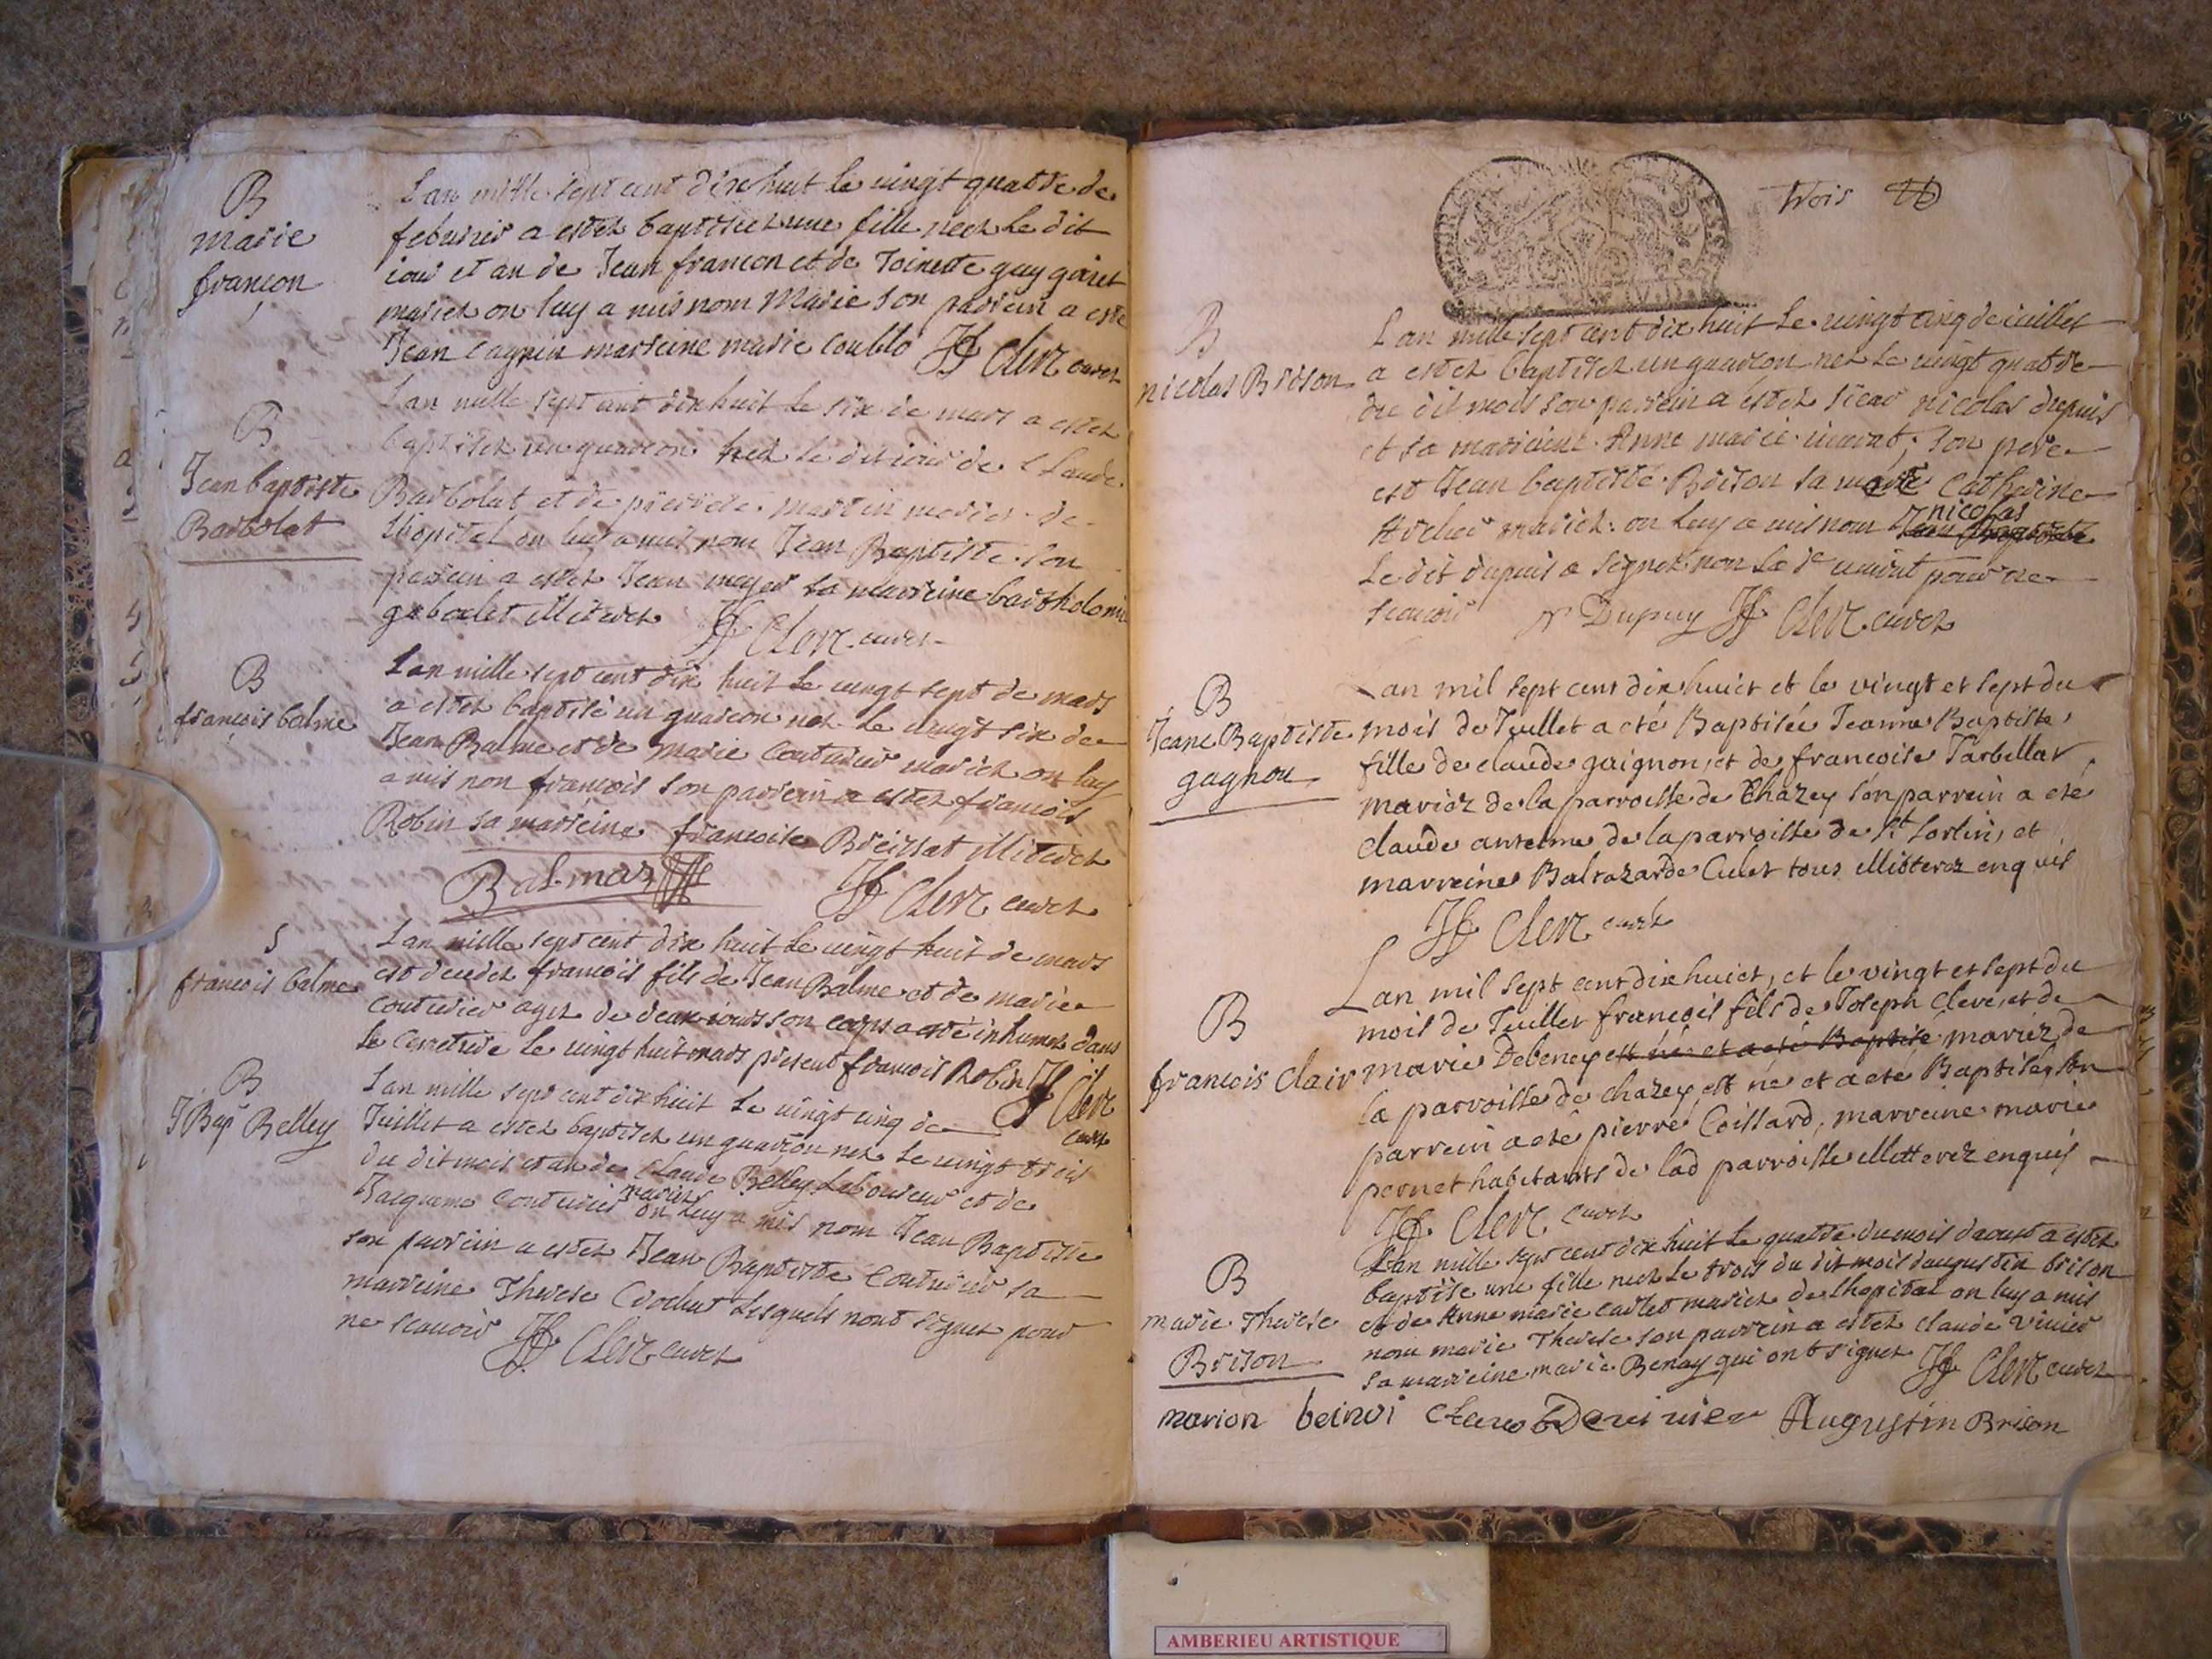 B
Marie
francon
L an mille sept cent dix huit le vingt quatre de
febvrier a estez baptisez une fille neez le dit
iour et an de Jean francon et de Toinette guy goiret
mariez on luy a mis nom Marie son parrein a este
Jean cagnin marreine marie coullo JF Clerc curez
B
Jean baptiste
Barbolat
L an mille sept cent dix huit le six de mars a estez
baptisez un guarcon nez le dit iour de Claude
Barbolat et de pierrete martin mariez de
lhopital on luy a mis nom Jean Baptiste son
parrein a estez Jean mayer sa marreine bartholomie
gabolet illiterez JF Clerc curez
B
françois balme
L an mille sept cent dix huit le vingt sept de mars
a estez baptisé un guarcon nez le vingt six de
Jean Balme et de marie Couturier mariez on luy
a mis non françois son parrein a estez françois
Robin sa marreine francoise Breissat illiterez
Balmaz JF Clerc curez
S
françois balme
L an mille sept cent dix huit le vingt huit de mars
est decedez francois fils de Jean Balme et de marie
couturier agez de deux iours son corps a esté inhumez dans
le cimetiere le vingt huit mars présent francois Robin JF Clerc
curez
B
J Bap Belley
L an mille sept cent dix huit le vingt cinq de
Juillet a estez baptisez un guarcon nez le vingt trois
du dit mois et an de Claude Belley Laboureur et de
Jacqueme Couturier mariez on luy a mis nom Jean Baptiste
son parrein a estez Jean Baptiste Couturier sa
marreine Therese Crochut lesquels nont signez pour
ne scauoir JF Clerc curez
Trois
B
nicolas Brison
L an mille sept cent dix huit le vingt cinq de iuillet
a estez baptisez un guarcon nez le vingt quatre
du dit mois son parrein a estez sieur nicolas dupuis
et sa marreine Anne marie iuvent, son pere
est Jean baptiste Brison sa mere Catherine
Archer mariez on luy a mis nom nicolas Jean Baptiste
Le dit dupuis a signez non la pour ne
scauoir N Dupuy JF Clerc curez
B
Jeane Baptiste
gagnon
Lan mil sept cent dix huict et le vingt et sept du
mois de Juillet a eté Baptisée Jeanne Baptiste
fille de claude gaignon, et de françoise Tarbellat
mariéz de la parroisse de Chazey son parrein a eté
claude anselme de la parroisse de St Sorlin, et
marreine Baltazarde Cuet tous illiterez enquis
JF Clerc curé
B
francois clair
Lan mil sept cent dix huict, et le vingt et sept du
mois de Juillet francois fils de Joseph Clere, et de
marie Debeney est né et a eté Baptisé mariéz de
la parroisse de chazey est né et a eté Baptisé, son
parrein a eté pierre Coillard, marreine marie
pernet habitants de lad parroisse illiterez enquis
JF Clerc curez
B
marie Therese
Brison
L an mille sept cent dix huit le quatre du mois daoust a estez
baptise une fille neez le trois du dit mois daugustin brison
et de Anne marie carlet mariez de lhopital on luy a mis
nom marie Therese son parrein a estez claude vivier
sa marreine marie Benay qui ont signez JF Clerc curez
marion beinoi Augustin Brison
AMBERIEU ARTISTIQUE